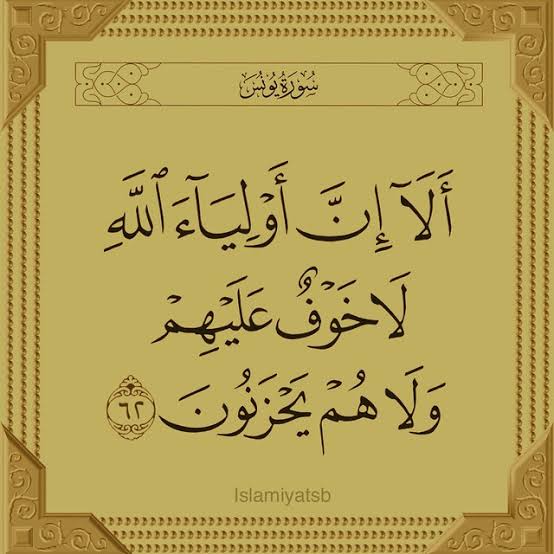 سُورَةُ يُونُسَ
أَلَآ إِنَّ أَوْلِيَآءَ ٱللَّهِ
لَا خَوْفٌ عَلَيْهِمْ
وَلَا هُمْ يَحْزَنُونَ ٦٢
Islamiyatsb